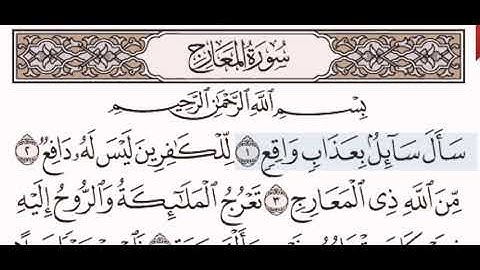 سُورَةُ المَعَارِجِ
بِسْمِ اللَّهِ الرَّحْمَٰنِ الرَّحِيمِ
سَأَلَ سَآئِلُۢ بِعَذَابٖ وَاقِعٖ ١ لِّلۡكَٰفِرِينَ لَيۡسَ لَهُۥ دَافِعٞ ٢
مِّنَ ٱللَّهِ ذِي ٱلۡمَعَارِجِ ٣ تَعۡرُجُ ٱلۡمَلَٰٓئِكَةُ وَٱلرُّوحُ إِلَيۡهِ